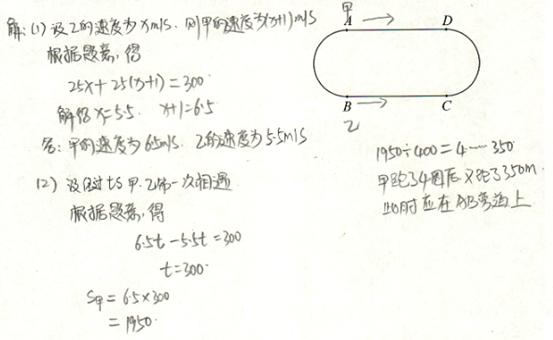 解：(1) 设乙的速度为xm/s. 则甲的速度为(x+1)m/s
根据题意，得
25x+25(x+1)=300
解得x=5.5. x+1=6.5
答：甲的速度为6.5m/s. 乙的速度为5.5m/s
(2) 设经过ts甲.乙第一次相遇
根据题意，得
6.5t-5.5t=300
t=300.
S甲=6.5×300
=1950.
甲
A D
B C
乙
1950÷400=4……350
甲跑了4圈后又跑了350m.
此时应在AB弯道上